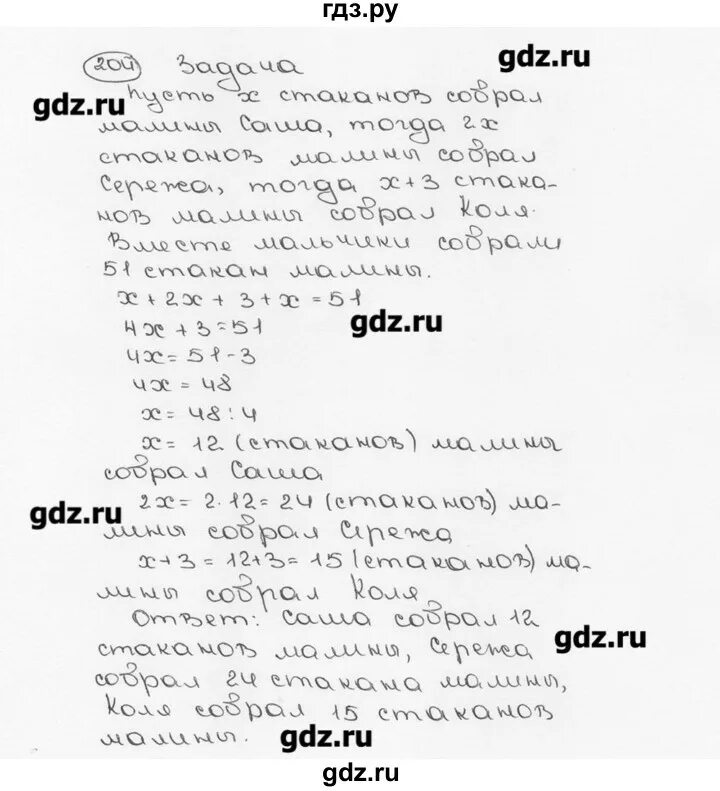 гдз.ру
204 Задача
gdz.ru
Пусть x стаканов собрал
gdz.ru
малины Саша, тогда 2x
стаканов малины собрал
Сережа, тогда x+3 стака-
нов малины собрал Коля.
Вместе мальчики собрали
51 стакан малины.
x + 2x + 3 + x = 51
gdz.ru
4x + 3 = 51
4x = 51 - 3
4x = 48
x = 48 : 4
x = 12 (стаканов) малины
собрал Саша
2x = 2 · 12 = 24 (стаканов) ма-
gdz.ru
лины собрал Сережа
x+3 = 12+3 = 15 (стаканов) ма-
лины собрал Коля
Ответ: Саша собрал 12
gdz.ru
стаканов малины, Сережа
собрал 24 стакана малины,
Коля собрал 15 стаканов
малины.
gdz.ru
gdz.ru